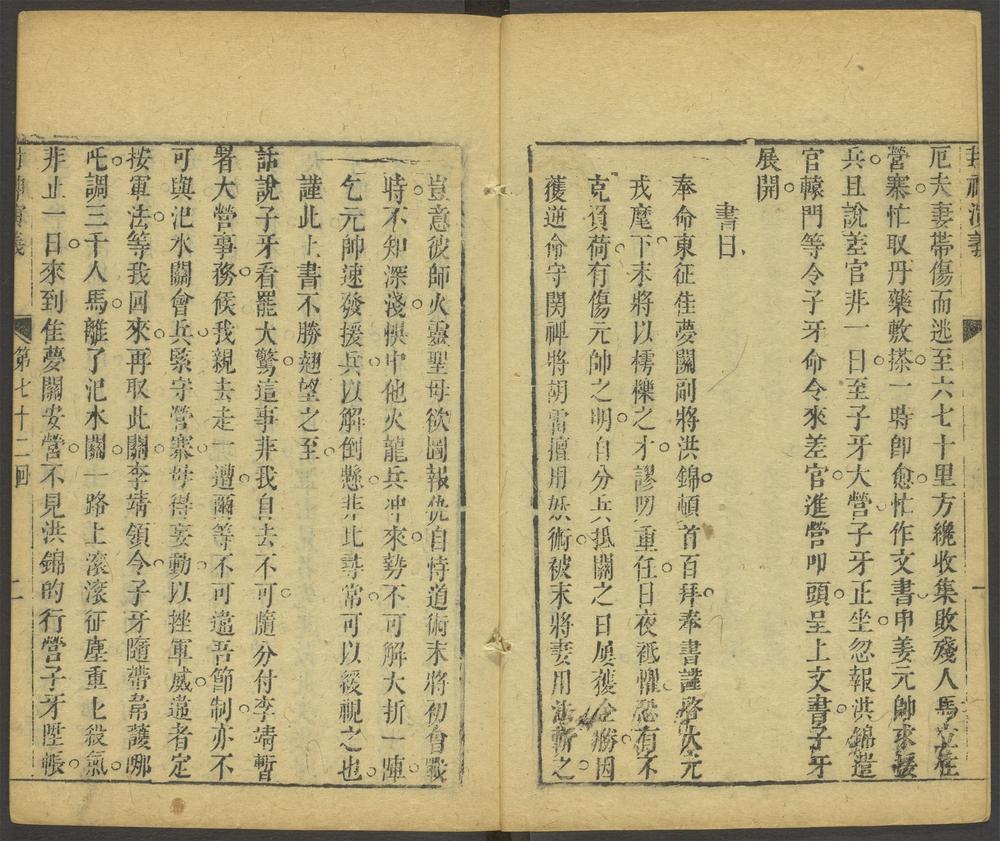 封神演義
厄夫妻帶傷而逃至六七十里方纔收集敗殘人馬立住
營寨忙取丹藥敷搽一時卽愈忙作文書申姜元帥求援
兵且說差官非一日至子牙大營子牙正坐忽報洪錦遣
官轅門等令子牙命令來差官進營叩頭呈上文書子牙
展開
書曰
奉命東征佳夢關副將洪錦頓首百拜奉書謹啓大元
戎麾下末將以樗櫟之才謬叨重任日夜祗懼恐有不
克負荷有傷元帥之明自分兵抵關之日屢獲全勝因
獲逆命守関裨將胡雷擅用妖術被末將妻用法斬之
豈意彼師火靈聖母欲圖報仇自恃道術末將初會戰
時不知深淺惧中他火龍兵冲來勢不可解大折一陣
乞元帥速發援兵以解倒懸非比尋常可以緩視之也
謹此上書不勝翹望之至
話說子牙看罷大驚這事非我自去不可隨分付李靖暫
署大營事務候我親去走一遭爾等不可違吾節制亦不
可與汜水關會兵緊守營寨毋得妄動以挫軍威違者定
按軍法等我回來再取此關李靖領令子牙隨帶韋護哪
吒調三千人馬離了汜水關一路上滾滾征塵重重殺氣
非止一日來到佳夢關安營不見洪錦的行營子牙陞帳
封神演義
第七十二回
二